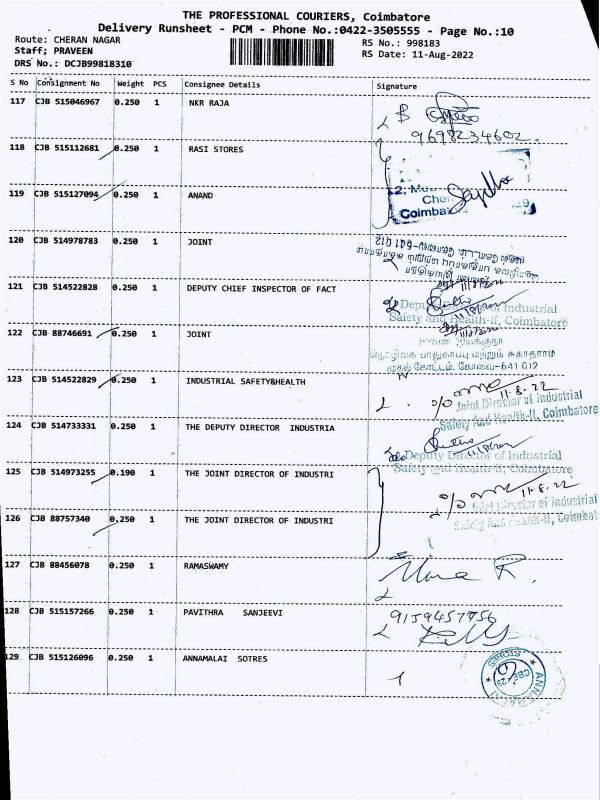 THE PROFESSIONAL COURIERS, Coimbatore
Delivery Runsheet - PCM - Phone No.:0422-3505555 - Page No.:10
Route: CHERAN NAGAR RS No.: 998183
Staff; PRAVEEN RS Date: 11-Aug-2022
DRS No.: DCJB99818310
S No Consignment No Weight PCS Consignee Details Signature
117 CJB 515046967 0.250 1 NKR RAJA
9698234602
118 CJB 515112681 0.250 1 RASI STORES
119 CJB 515127094 0.250 1 ANAND
Coimba
120 CJB 514978783 0.250 1 JOINT
121 CJB 514522828 0.250 1 DEPUTY CHIEF INSPECTOR OF FACT
Industrial
Safety and Health-II, Coimbatore
122 CJB 88746691 0.250 1 JOINT
தொழிலக பாதுகாப்பு மற்றும் சுகாதாரம்
கோட்டம், கோவை-641 012
123 CJB 514522829 0.250 1 INDUSTRIAL SAFETY&HEALTH
11.8.22
Joint Director of Industrial
Safety And Health-II, Coimbatore
124 CJB 514733331 0.250 1 THE DEPUTY DIRECTOR INDUSTRIA
Deputy Director of Industrial
Safety and Health-II, Coimbatore
125 CJB 514973255 0.190 1 THE JOINT DIRECTOR OF INDUSTRI
11.8.22
Joint Director of Industrial
126 CJB 88757340 0.250 1 THE JOINT DIRECTOR OF INDUSTRI
Safety And Health-II, Coimbat
127 CJB 88456078 0.250 1 RAMASWAMY
128 CJB 515157266 0.250 1 PAVITHRA SANJEEVI
9159457756
129 CJB 515126096 0.250 1 ANNAMALAI SOTRES
STORES
CBE-29